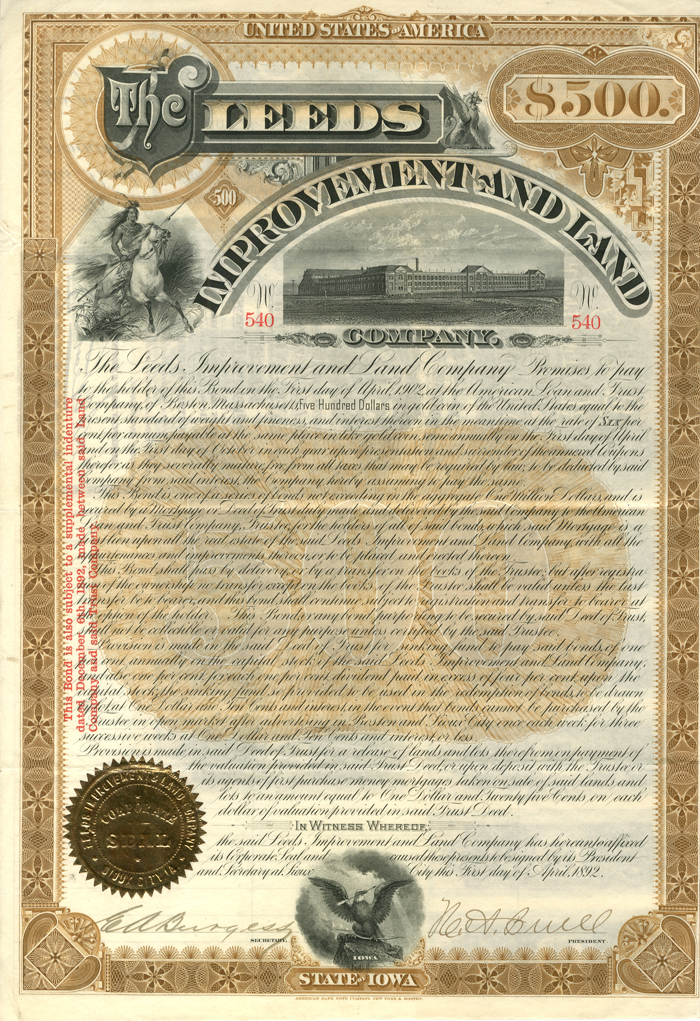 UNITED STATES OF AMERICA
The LEEDS
$500.
500
IMPROVEMENT AND LAND
COMPANY.
No. 540
No. 540
The Leeds Improvement and Land Company Promises to pay
to the holder of this Bond on the First day of April, 1902, at the American Loan and Trust
Company, of Boston, Massachusetts, Five Hundred Dollars in gold coin of the United States equal to the
present standard of weight and fineness, and interest thereon in the meantime at the rate of Six per
cent per annum, payable at the same place in like gold coin semi-annually on the first day of April
and on the first day of October in each year upon presentation and surrender of the annexed Coupons
therefor as they severally mature, free from all taxes that may be required by law, to be deducted by said
Company from said interest, said Company hereby assuming to pay the same.
This Bond is one of a series of bonds, not exceeding in the aggregate One Million Dollars, and is
secured by a Mortgage or Deed of Trust duly executed by the said Company to the American
Loan and Trust Company, Trustee, for the holders of all of said bonds, and the said Mortgage is a
lien upon all the real estate of the said Leeds Improvement and Land Company, with all the
appurtenances and improvements thereon, or to be placed and erected thereon.
This Bond shall pass by delivery, or by a transfer on the books of the Trustee, but after registra-
tion of the ownership no transfer except on the books of the Trustee shall be valid unless the last
transfer be to bearer, and this bond shall continue subject to registration and transfer to bearer at
the option of the holder. This Bond or any bond purporting to be secured by said Deed of Trust,
shall not be collectible or valid for any purpose unless certified by the said Trustee.
Provision is made in the said Deed of Trust for a sinking fund to pay said bonds, of one
per cent, annually on the capital stock of the said Leeds Improvement and Land Company,
and of twenty per cent of any dividend declared and paid, in excess of four per cent upon the
capital stock, the sinking fund so provided to be used in the redemption of bonds, to be drawn
by lot at One Dollar and Ten Cents and interest, in the event that bonds cannot be purchased by the
Trustee in open market after advertising in Boston and Sioux City once each week for three
successive weeks at One Dollar and Ten Cents and interest, or less.
Provision is made in said Deed of Trust for a release of lands and lots therefrom on payment of
the valuation provided in said Trust Deed, or upon deposit with the Trustee or
its agents of first purchase money mortgages taken on sale of said lands and
lots to an amount equal to One Dollar and Twenty five Cents on each
dollar of valuation provided in said Trust Deed.
IN WITNESS WHEREOF,
the said Leeds Improvement and Land Company has hereunto affixed
its Corporate Seal and caused these presents to be signed by its President
and Secretary at Sioux City this First day of April, 1892.
This Bond is also subject to a supplemental indenture
dated December 6th, 1892, made between said Land
Company and said Trust Company.
CORPORATE
SEAL
SECRETARY.
PRESIDENT
IOWA
STATE OF IOWA
AMERICAN BANK NOTE COMPANY, NEW YORK & BOSTON.